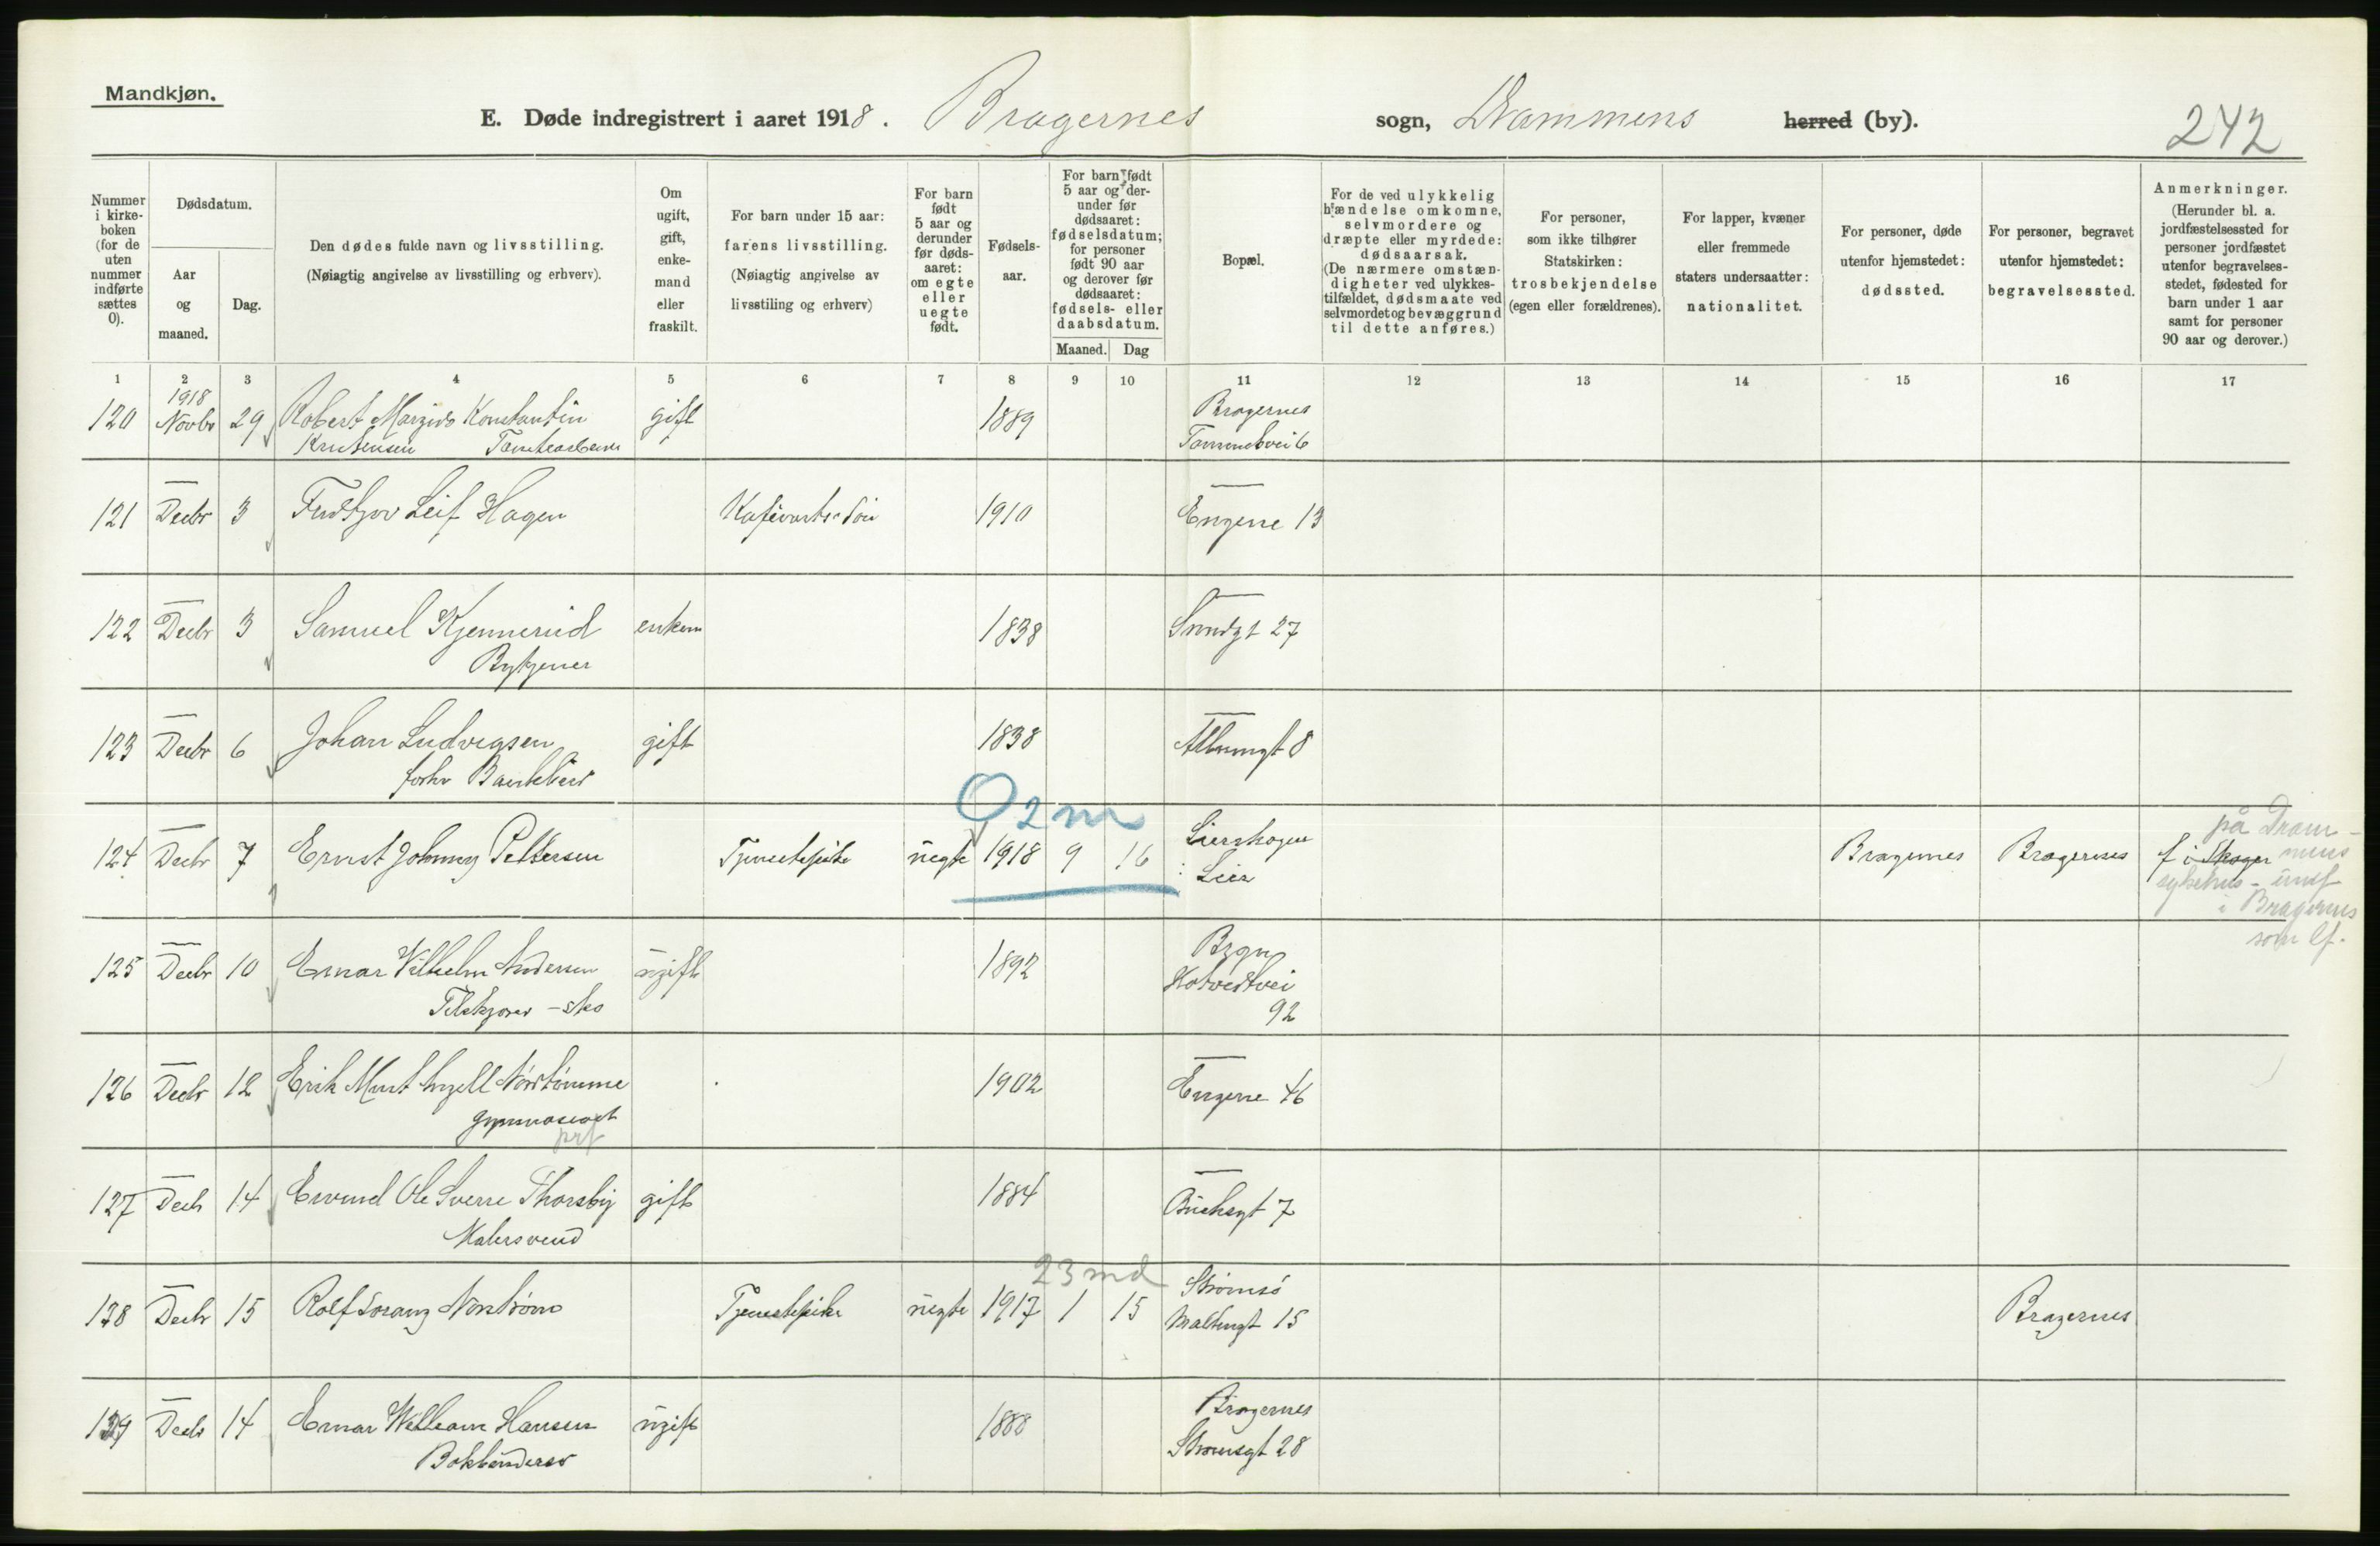 Mandkjøn.
E. Døde indregistrert i aaret 1918. Bragernes sogn, Drammens herred (by).
242
Nummer i kirkeboken (for de uten nummer indførte sættes 0).
Dødsdatum.
Aar og maaned.
Dag.
Den dødes fulde navn og livsstilling.
(Nøiagtig angivelse av livsstilling og erhverv).
Om ugift, gift, enkemand eller fraskilt.
For barn under 15 aar: farens livsstilling.
(Nøiagtig angivelse av livsstiling og erhverv)
For barn født 5 aar og derunder før dødsaaret: om egte eller uegte født.
Fødselsaar.
For barn født 5 aar og derunder før dødsaaret: fødselsdatum; for personer født 90 aar og derover før dødsaaret: fødsels- eller daabsdatum.
Maaned. Dag
Bopæl.
For de ved ulykkelig hændelse omkomne, selvmordere og dræpte eller myrdede: dødsaarsak.
(De nærmere omstændigheter ved ulykkestilfældet, dødsmaate ved selvmordet og bevæggrund til dette anføres.)
For personer, som ikke tilhører Statskirken: trosbekjendelse (egen eller forældrenes).
For lapper, kvæner eller fremmede staters undersaatter: nationalitet.
For personer, døde utenfor hjemstedet: dødssted.
For personer, begravet utenfor hjemstedet: begravelsessted.
Anmerkninger.
(Herunder bl. a. jordfæstelsessted for personer jordfæstet utenfor begravelsesstedet, fødested for barn under 1 aar samt for personer 90 aar og derover.)
1 2 3 4 5 6 7 8 9 10 11 12 13 14 15 16 17
1918
120 Novbr 29 Robert Konstantin gift 1889 Bragernes
121 Decbr 3 Leif Hagen 1910 Engene 13
122 Decbr 3 Samuel Kjennerud enkem 1838 Sundgt 27
123 Decbr 6 Johan Ludvigsen gift 1838 8
02 m
124 Decbr 7 Ernst Johnny Pettersen Tjenestepike uegte 1918 9 16 Lierskogen
Lier
Bragernes Bragernes
på Drammens
f i Skoger
sykehus - innf
i Bragernes
som lf.
125 Decbr 10 Einar Vilhelm Andersen ugift 1892
92
126 Decbr 12 Erik 1902 Engene 46
gymnasiast
127 Decbr 14 Ole Sverre Thorsby gift 1884 7
Malersvend
23 md
128 Decbr 15 Rolf Tjenestepike uegte 1917 1 15 Strømsø
15
Bragernes
129 Decbr 14 Einar William Hansen ugift 1888 Bragernes
Bokbinder Strømsgt 28